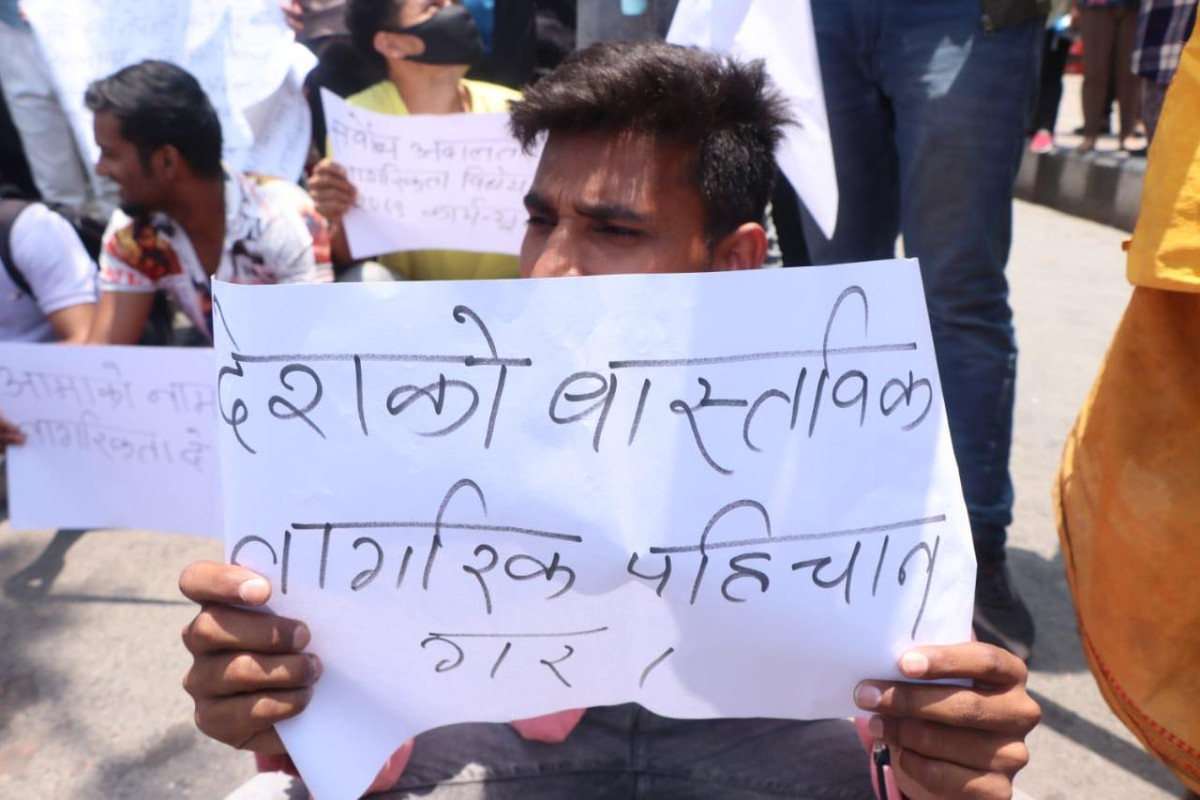 सर्वोच्च अदालत
नागरिकता विधेय
२०७९ कार्य
आमाको नाम
नागरिकता दे
देशको वास्तविक
नागरिक पहिचान
गर ।